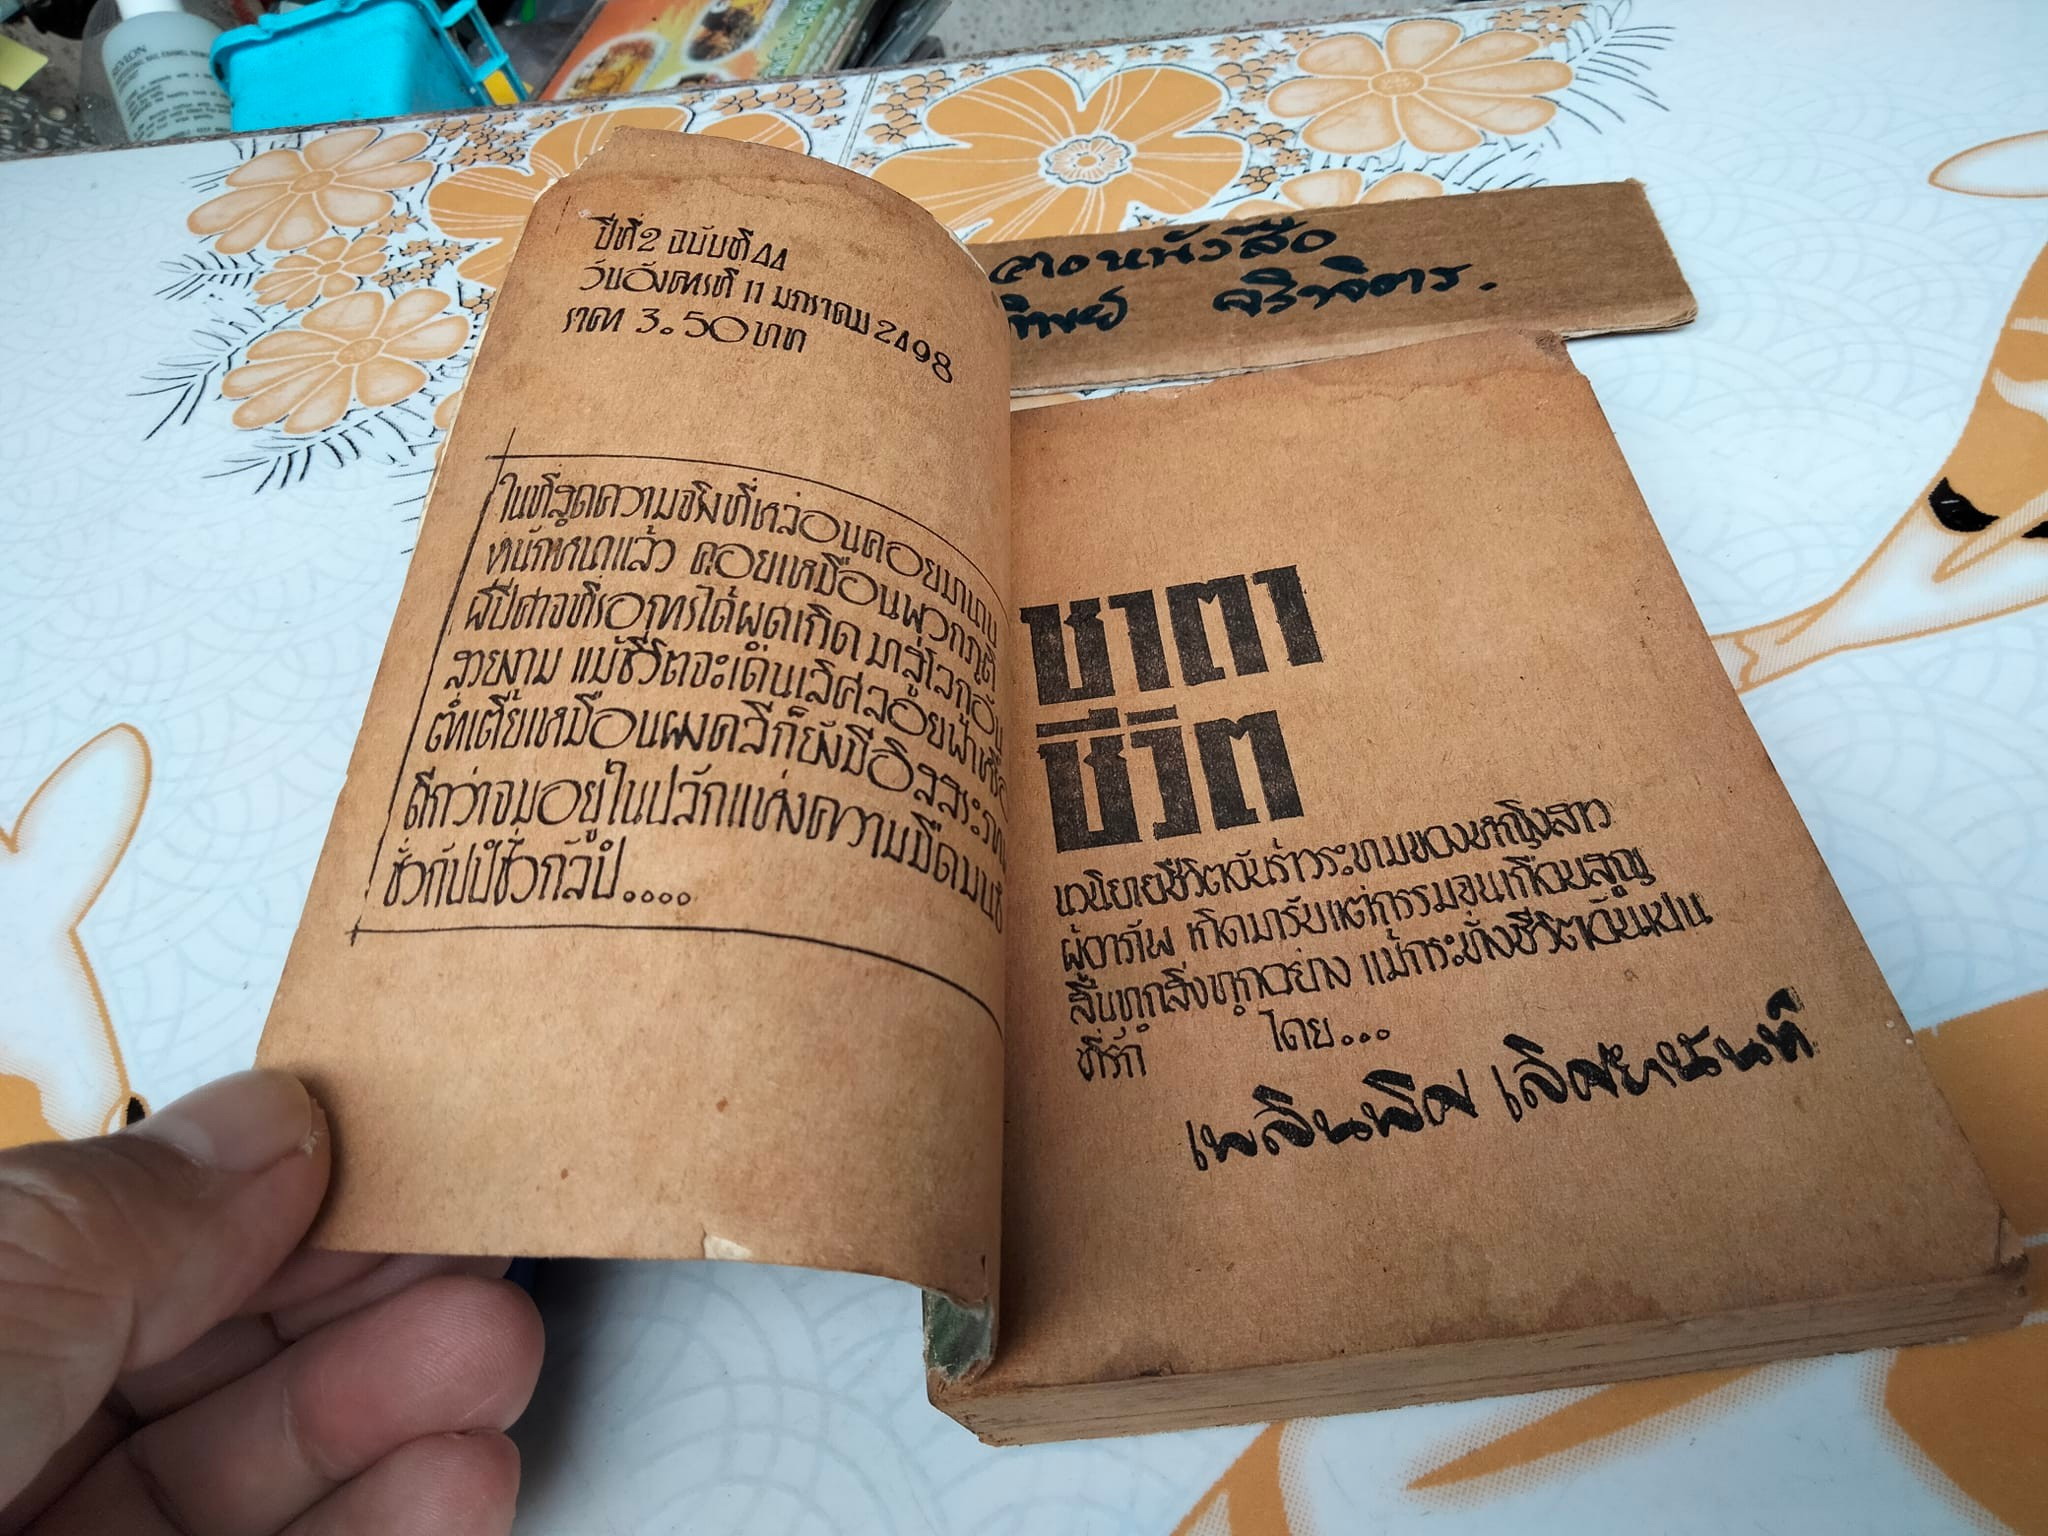 ปีที่ 2 ฉบับที่ ๔๔
วันอังคารที่ 11 มกราคม 2๔98
ราคา 3.50 บาท
ในที่สุดความจริงที่หล่อนคอยมานาน
หนักหนาแล้ว คอยเหมือนพวกภูติ
ผีปีศาจที่รอการได้ผุดเกิด มาสู่โลกอัน
สวยงาม แม้ชีวิตจะเด่นเลิศลอยฟ้าหรือ
ต่ำเตี้ยเหมือนผงคลีก็ยังมีอิสสระภาพ
ดีกว่าจมอยู่ในปลักแห่งความมืดมน
ชั่วกัปป์ชั่วกัลป์....
ชาตา
ชีวิต
นวนิยายชีวิตอันร้าวระบมของหญิงสาว
ผู้อาภัพ เกิดมารับแต่กรรมจนเกือบสูญ
สิ้นทุกสิ่งทุกอย่าง แม้กระทั่งชีวิตอันเปน
ที่รัก โดย...
เพลินพิศ เลิศยานันท์
REVLON
จองหนังสือ
ทิพย์